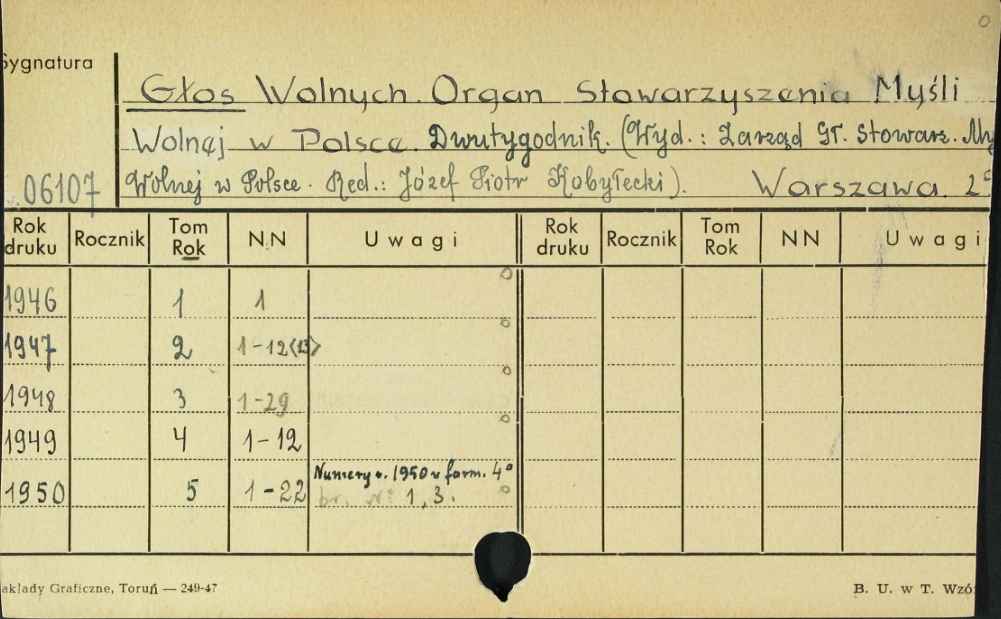 Sygnatura
Głos Wolnych. Organ Stowarzyszenia Myśli
Wolnej w Polsce. Dwutygodnik. (Wyd.: Zarząd Gł. Stowarz. My
06107 Wolnej w Polsce. Red.: Józef Piotr Kobyłecki). Warszawa. 2°
Rok druku Rocznik Tom Rok NN Uwagi Rok druku Rocznik Tom Rok NN Uwagi
1946 1 1
1947 2 1-12(13)
1948 3 1-29
1949 4 1-12
Numery r. 1950 w form. 4°
1950 5 1-22 br. nr: 1, 3.
akłady Graficzne, Toruń — 249-47 B. U. w T. Wzó